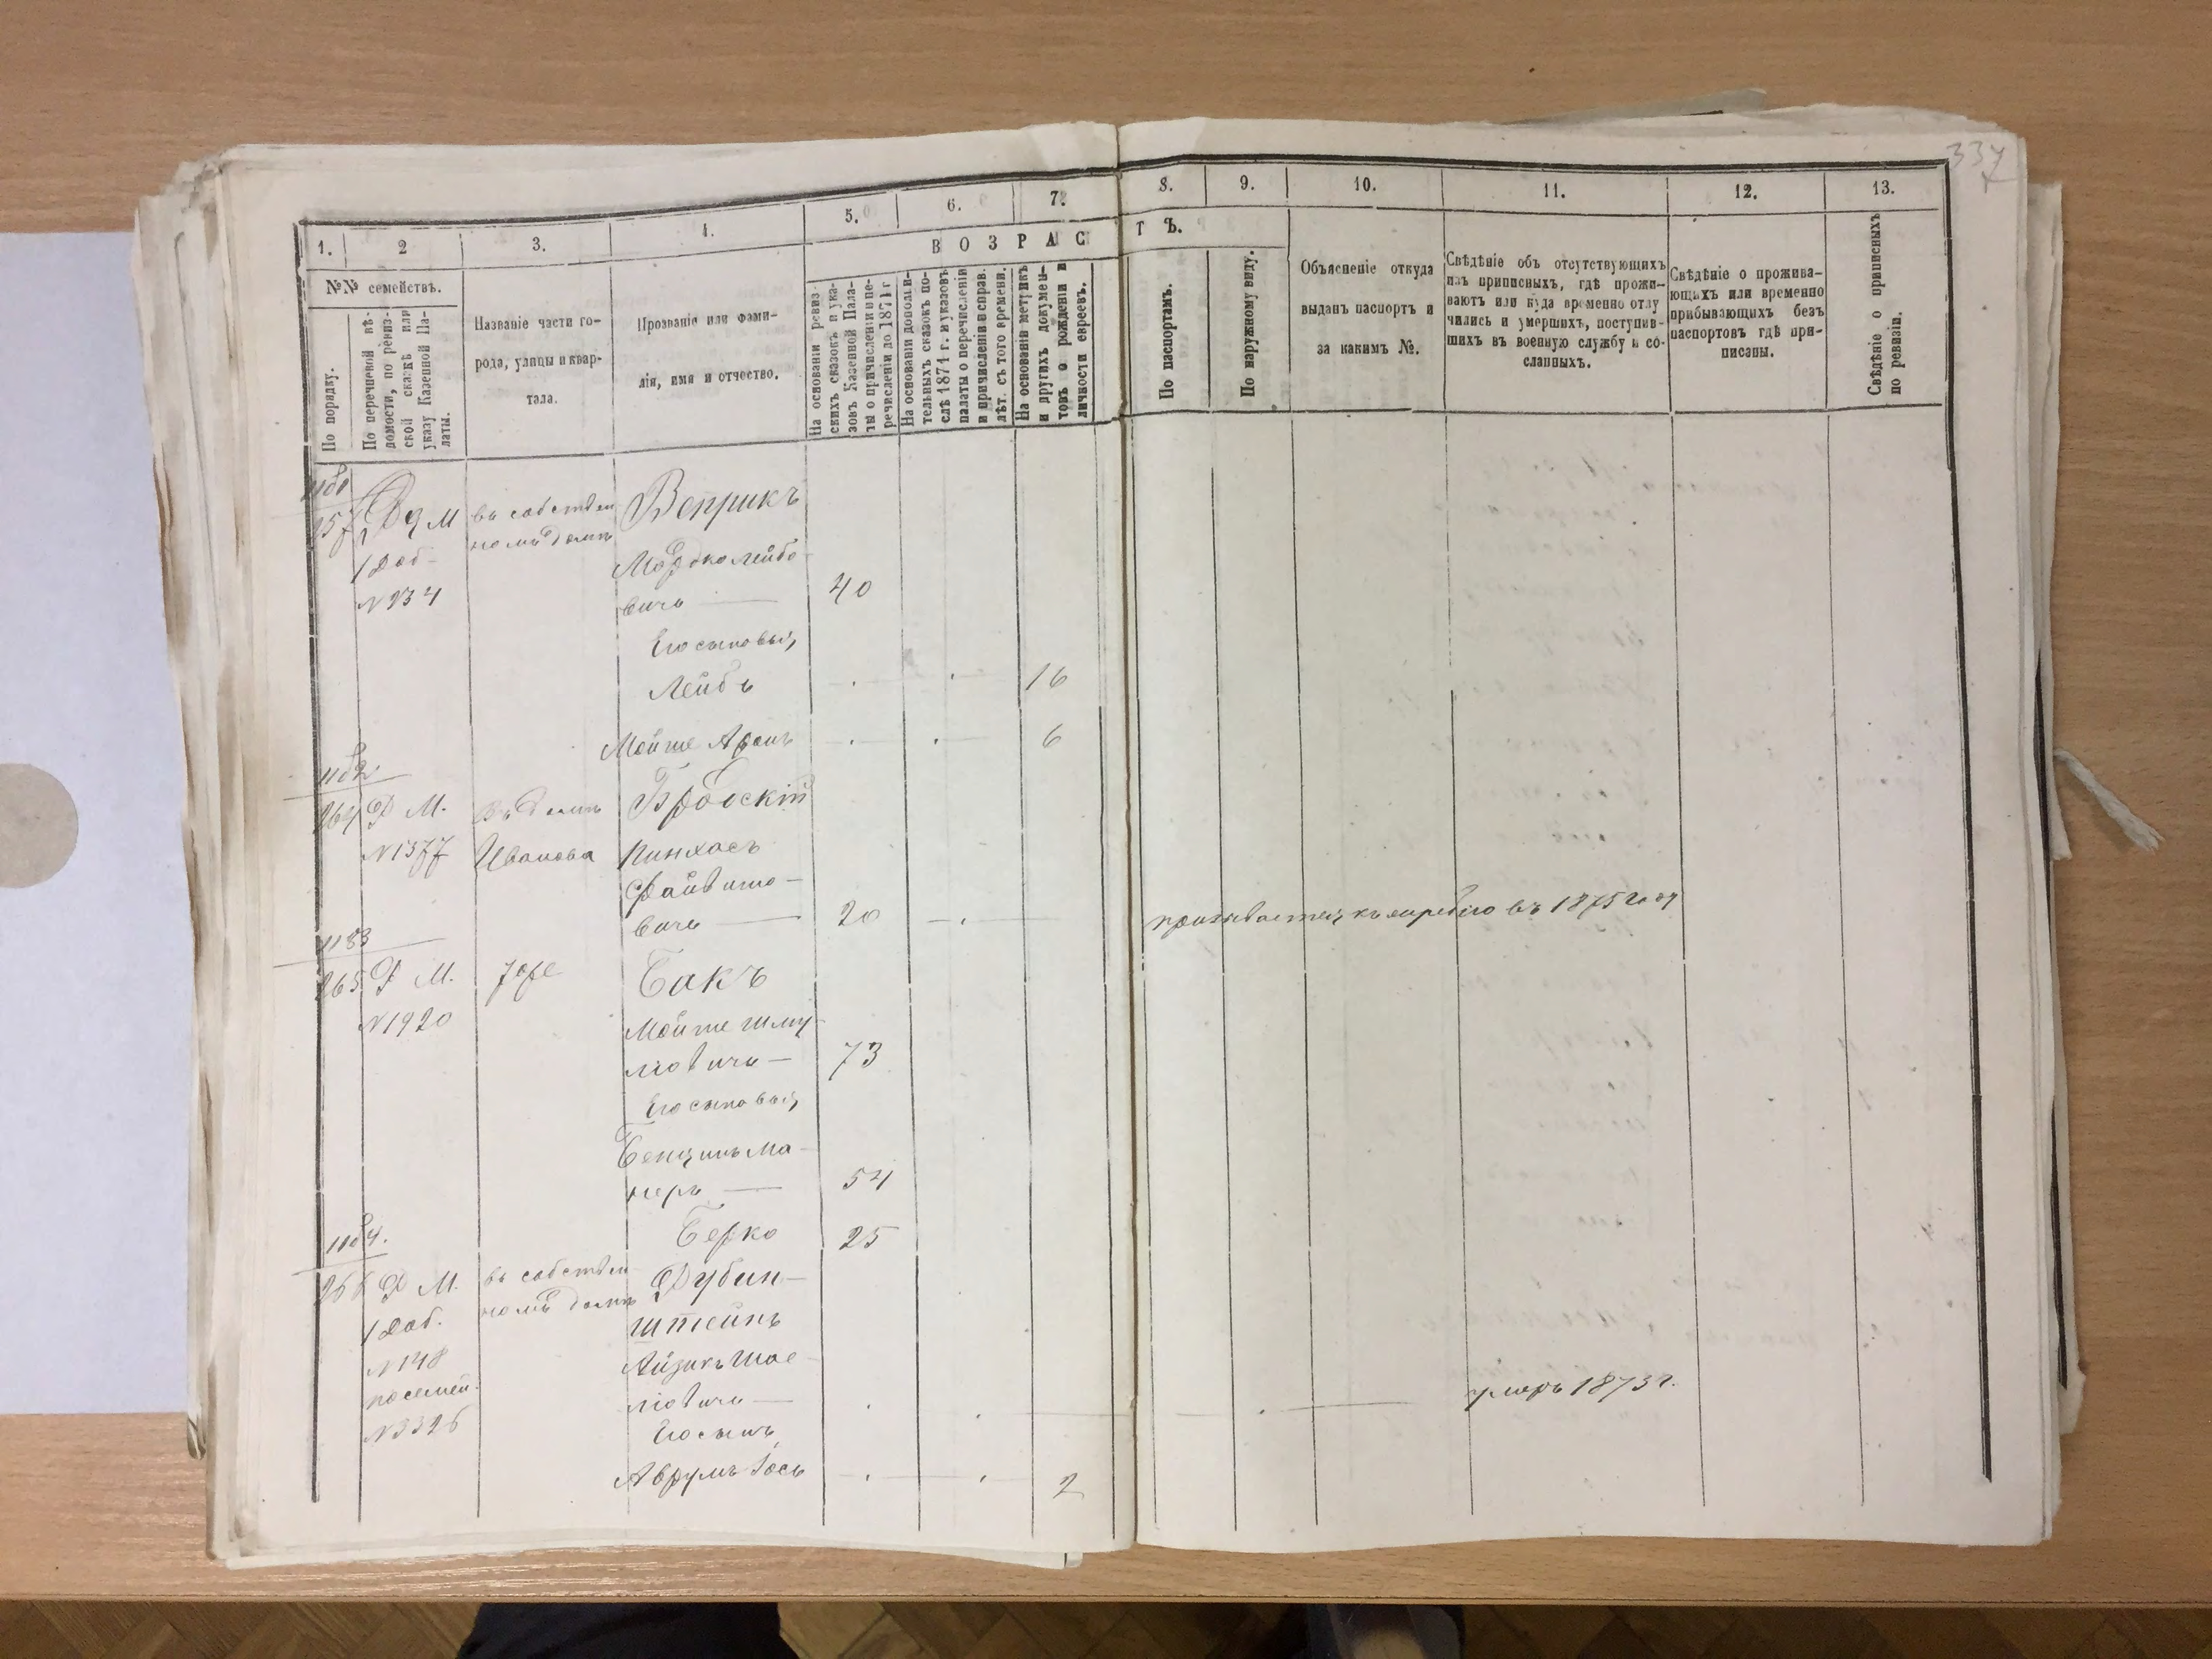 337
1.
2
3.
4.
5.
6.
7.
8.
9.
10.
11.
12.
13.
№№ семействъ.
По порядку.
По перечневой вѣ-
домости, по ревиз-
ской сказкѣ или
указу Казенной Па-
латы.
Названіе части го-
рода, улицы и квар-
тала.
Прозваніе или фами-
лія, имя и отчество.
ВОЗРАС
ТЪ.
На основаніи ревиз-
скихъ сказокъ и ука-
зовъ Казенной Пала-
ты о причисленіи и пе-
речисленіи до 1874 г
На основаніи дополни-
тельныхъ сказокъ по-
слѣ 1874 г. и указовъ
палаты о перечисленіи
и причисленіи и справ.
лѣт. съ того времени.
На основаніи метрикъ
и другихъ докумен-
товъ о рожденіи и
личности евреевъ.
По паспортамъ.
По наружному виду.
Объясненіе откуда
выданъ паспортъ и
за какимъ №.
Свѣдѣніе объ отсутствующихъ
изъ приписныхъ, гдѣ прожи-
ваютъ или куда временно отлу
чились и умершихъ, поступив-
шихъ въ военную службу и со-
сланныхъ.
Свѣдѣніе о прожива-
ющихъ или временно
прибывающихъ безъ
паспортовъ гдѣ при-
писаны.
Свѣдѣніе о приписныхъ
по ревизіи.
1181
М въ собствен Веприкъ
1 Доб- номъ домѣ
Мордко Лейбо-
№ 234 вичъ — 40
Его сыновья,
Лейбъ 16
Мойше Аронъ 6
1182
264 Д М. Въ домѣ Бродскій
№ 1377 Иванова Пинхасъ
Файвишо-
вичъ — 20 призывается къ жребію въ 1875 году
1183
265 Д М. Бакъ
№ 1920 Мойше Шму-
лювичъ — 73
Его сыновья,
Бенцинъ Ма-
неръ — 54
Берко 25
1184.
266 Д М. въ собствен Дубин-
1 Доб. номъ домѣ штейнъ
№ 148 Айзикъ Шае-
посемей. лювичъ — умеръ 1873 г.
№ 3326 Его сынъ,
Аврумъ Іось 2